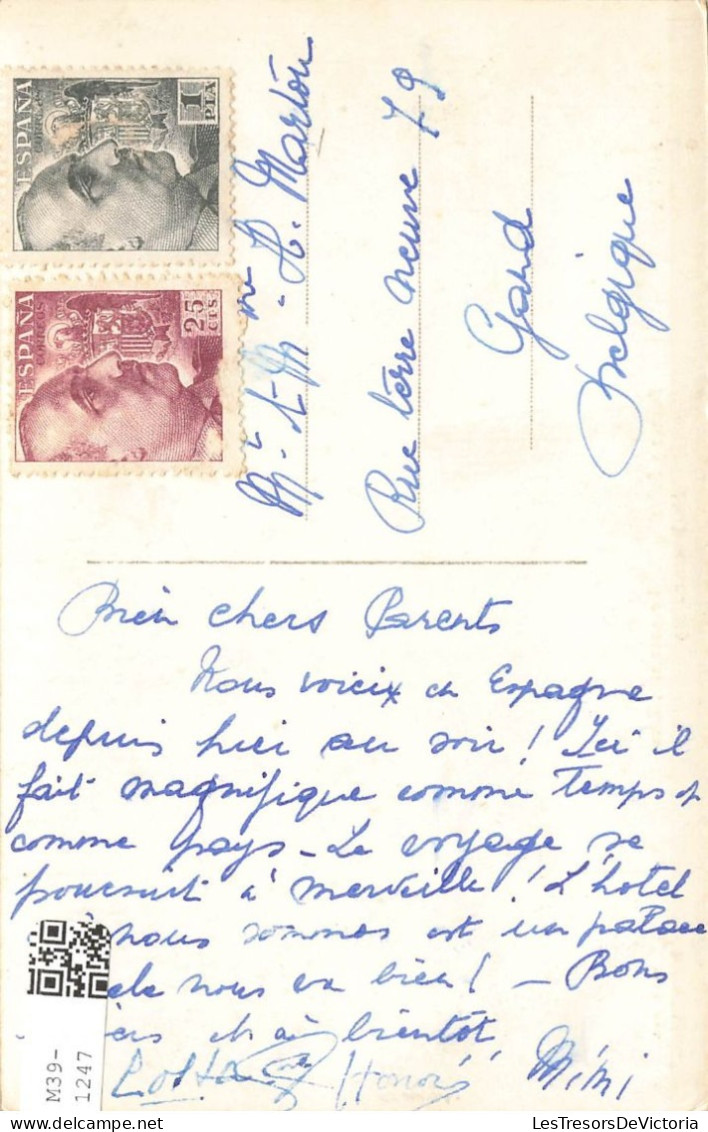 ESPAÑA
CORREOS
1
PTA
ESPAÑA
CORREOS
25
CTS
Mr. & Mme. H. Martou
Rue terre neuve 79
Gand
Belgique
Mien chers Parents
Nous voicix en Espagne
depuis hier au soir ! Ici il
fait magnifique comme temps et
comme pays - Le voyage se
poursuit à merveille ! L'hotel
nous sommes est un palace
nous va bien ! - Bons
et à bientôt,
Mimi
M39-
1247
LesTresorsDeVictoria.com